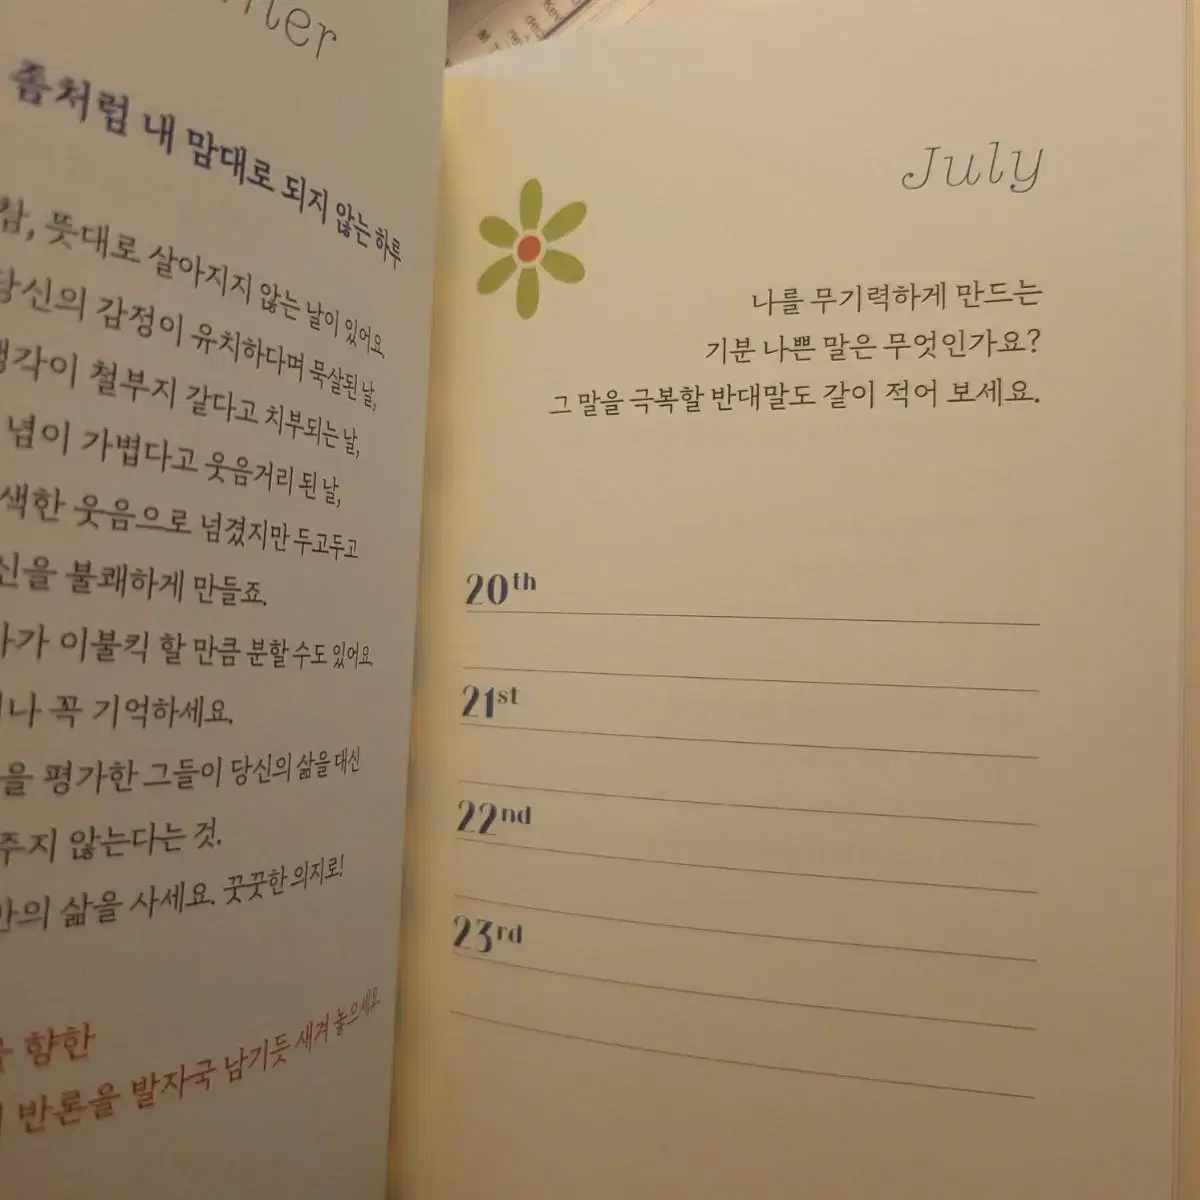 좀처럼 내 맘대로 되지 않는 하루
참, 뜻대로 살아지지 않는 날이 있어요.
당신의 감정이 유치하다며 묵살된 날,
생각이 철부지 같다고 치부되는 날,
념이 가볍다고 웃음거리 된 날,
색한 웃음으로 넘겼지만 두고두고
신을 불쾌하게 만들죠.
가 이불킥 할 만큼 분할 수도 있어요.
나 꼭 기억하세요.
을 평가한 그들이 당신의 삶을 대신
주지 않는다는 것.
만의 삶을 사세요. 꿋꿋한 의지로!
향한
반론을 발자국 남기듯 새겨 놓으세요.
July
나를 무기력하게 만드는
기분 나쁜 말은 무엇인가요?
그 말을 극복할 반대말도 같이 적어 보세요.
20th
21st
22nd
23rd